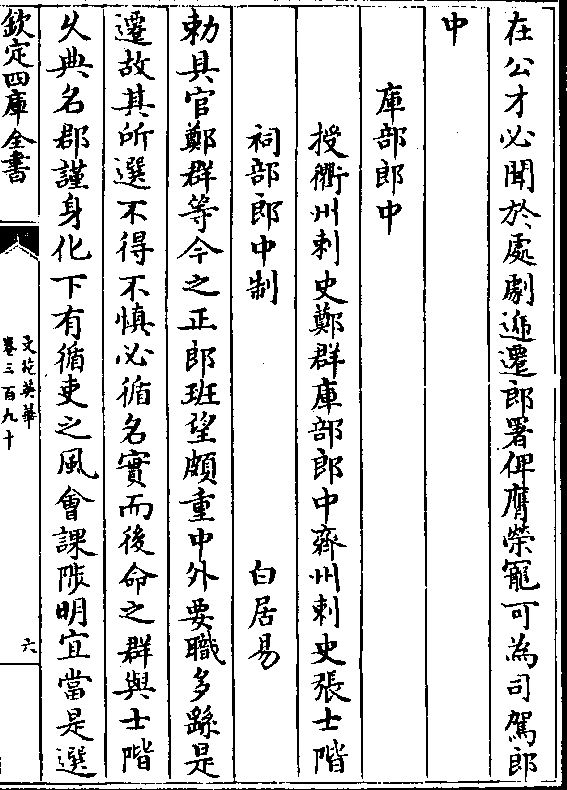 在公才必聞於處劇遞遷郎署俾膺榮寵可為司駕郎
中
庫部郎中
授衢州刺史鄭群庫部郎中齊州刺史張士階
祠部郎中制
白居易
勅具官鄭群等今之正郎班望頗重中外要職多繇是
遷故其所選不得不慎必循名實而後命之群與士階
久典名郡謹身化下有循吏之風會課陟明宜當是選
欽定四庫全書
文苑英華
卷三百九十
六